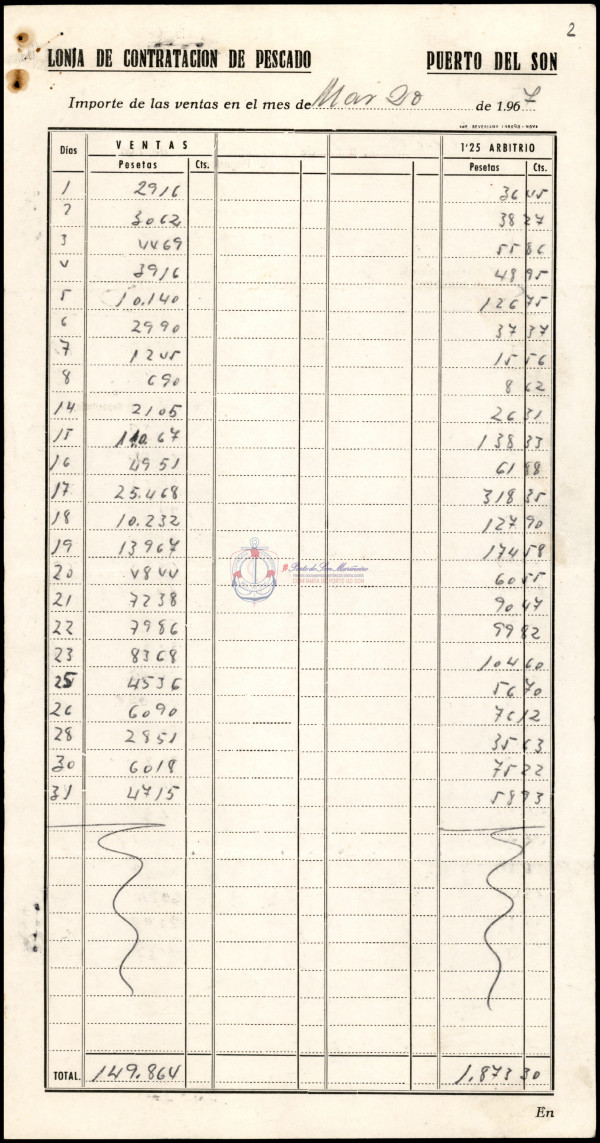 2
LONJA DE CONTRATACION DE PESCADO PUERTO DEL SON
Importe de las ventas en el mes de Marzo de 1.967
Días VENTAS 1'25 ARBITRIO
Pesetas Cts. Pesetas Cts.
1 2916 36 45
2 3062 38 27
3 4469 55 86
4 3916 48 95
5 10.140 126 75
6 2990 37 37
7 1245 15 56
8 690 8 62
14 2105 26 31
15 110.67 138 33
16 4951 61 88
17 25.468 318 35
18 10.232 127 90
19 13967 174 58
20 4844 60 55
21 7238 90 47
22 7986 99 82
23 8368 104 60
25 4536 56 70
26 6090 76 12
28 2851 35 63
30 6018 75 22
31 4715 58 93
Porto do Son Mariñeiro
TOTAL. 149.864 1.873 30
En